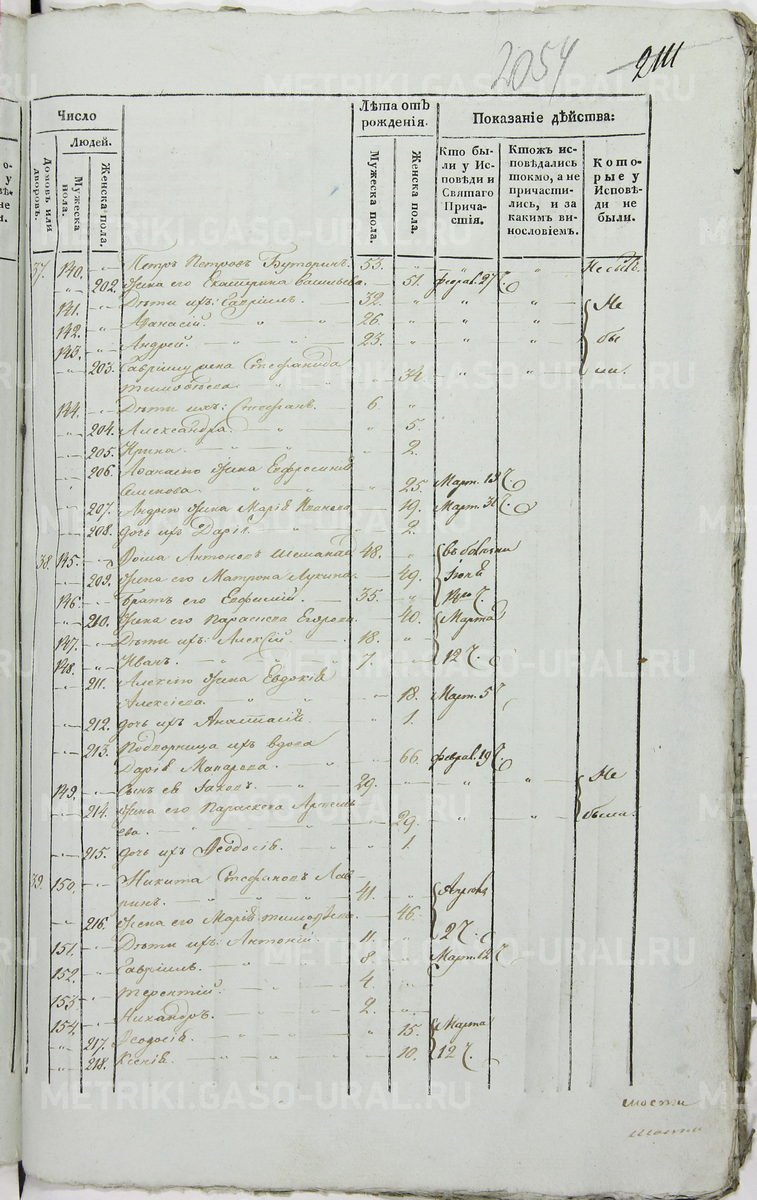 2054
2111
Число
Людей.
Домовъ или дворовъ.
Мужеска пола.
Женска пола.
Лѣта отъ рожденія.
Мужеска пола.
Женска пола.
Показаніе дѣйства:
Кто бы-
ли у Ис-
повѣди и
Святаго
Прича-
стія.
Ктожъ ис-
повѣдались
токмо, а не
причасти-
лись, и за
какимъ ви-
нословіемъ.
Кото-
рые у
Исповѣ-
ди не
были.
37. 140. Петръ Петровъ Бутаринъ. 53. Не былъ.
202. Жена его Екатерина Васильева 51. Феврал. 27
141. Дѣти ихъ: Гавріилъ. 32. Не
142. Афанасій. 26. бы
143. Андрей. 23.
203. Гавріилу жена Стефанида 34. ли.
Тимоѳеева.
144. Дѣти ихъ: Стефанъ. 6
204. Александра. 5.
205. Ирина. 2.
206. Афанасію жена Евфросинія
Семенова. 25. Март. 13
207. Андрею жена Марія Иванова 19. Март. 31
208. Дочь ихъ Дарія. 2.
38. 145. Ѳома Антоновъ 48.
209. Жена его Матрона Лукина. 49. Іюня
146. Братъ его Евфимій. 35.
210. Жена его Параскева Егорова. 40. Марта
147. Дѣти ихъ: Алексій. 18. 12
148. Иванъ. 7.
211. Алексію жена Евдокія
Алексіева. 18. Март. 5
212. Дочь ихъ Анастасія. 1.
213. Подворница ихъ вдова
Дарія Макарова. 66. Феврал. 19
149. Сынъ ея Іаковъ. 29. Не
214. Жена его Параскева Артемь
ева. 29. были.
215. Дочь ихъ Ѳеодосія. 1
39. 150. Никита Стефановъ Лав
ринъ. 41. Апрѣля
216. Жена его Марія Тимоѳеева. 46. 2
151. Дѣти ихъ: Антоній. 11.
152. Гавріилъ. 8. Март. 12
153. Терентій. 4.
154. Никандръ. 2.
217. Ѳеодосія. 15. Марта
218. Ксенія. 10. 12
METRIKI.GASO-URAL.RU